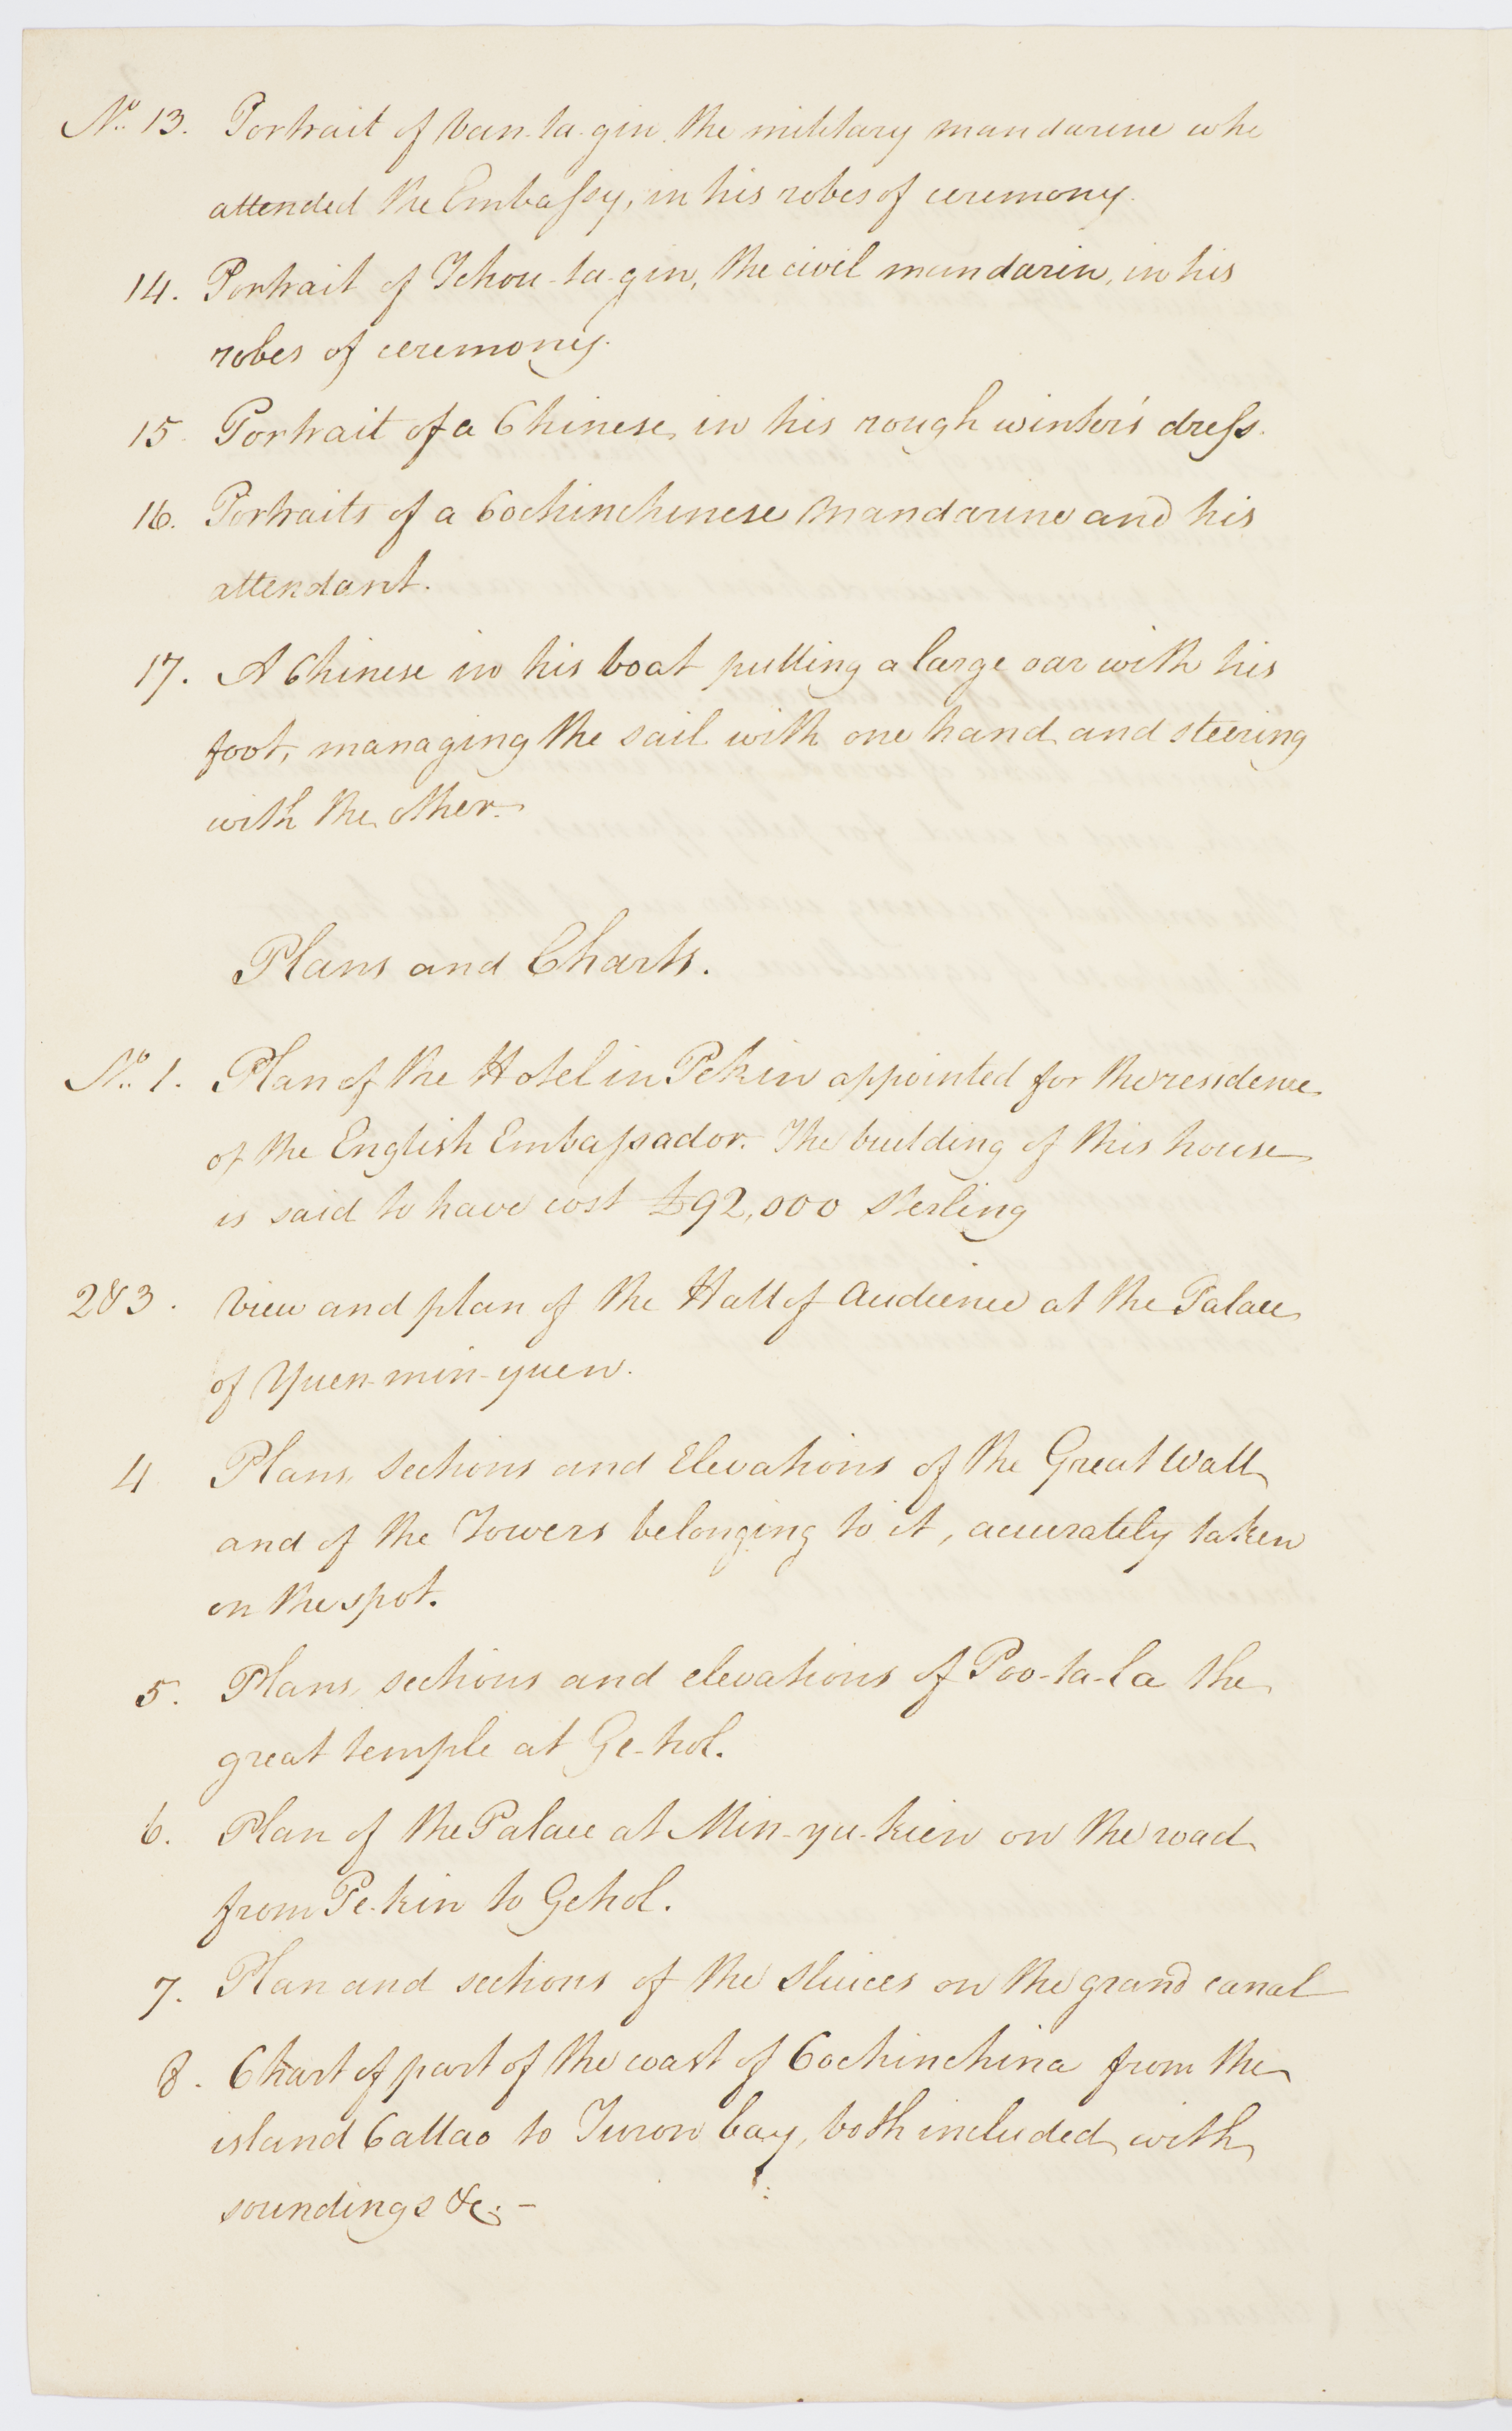 No. 13. Portrait of Van-ta-gin, the military mandarine who
attended the Embassy, in his robes of ceremony.
14. Portrait of Tchou-ta-gin, the civil mandarin, in his
robes of ceremony.
15 Portrait of a Chinese, in his rough winter's dress.
16. Portraits of a Cochinchinese Mandarine and his
attendant.
17. A Chinese in his boat pulling a large oar with his
foot, managing the sail with one hand and steering
with the other.
Plans and Charts.
No. 1. Plan of the Hotel in Pekin appointed for the residence
of the English Embassador. The building of this house
is said to have cost £92,000 Sterling
2&3. View and plan of the Hall of Audience at the Palace
of Yuen-min-yuen.
4 Plans, Sections and Elevations of the Great Wall
and of the Towers belonging to it, accurately taken
on the spot.
5. Plans, sections and elevations of Poo-ta-la the
great temple at Ge-hol.
6. Plan of the Palace at Min-yu-kien on the road
from Pe-kin to Gehol.
7. Plan and sections of the Sluices on the grand canal
8. Chart of part of the coast of Cochinchina from the
island Callao to Turon bay, both included, with
soundings &c. -